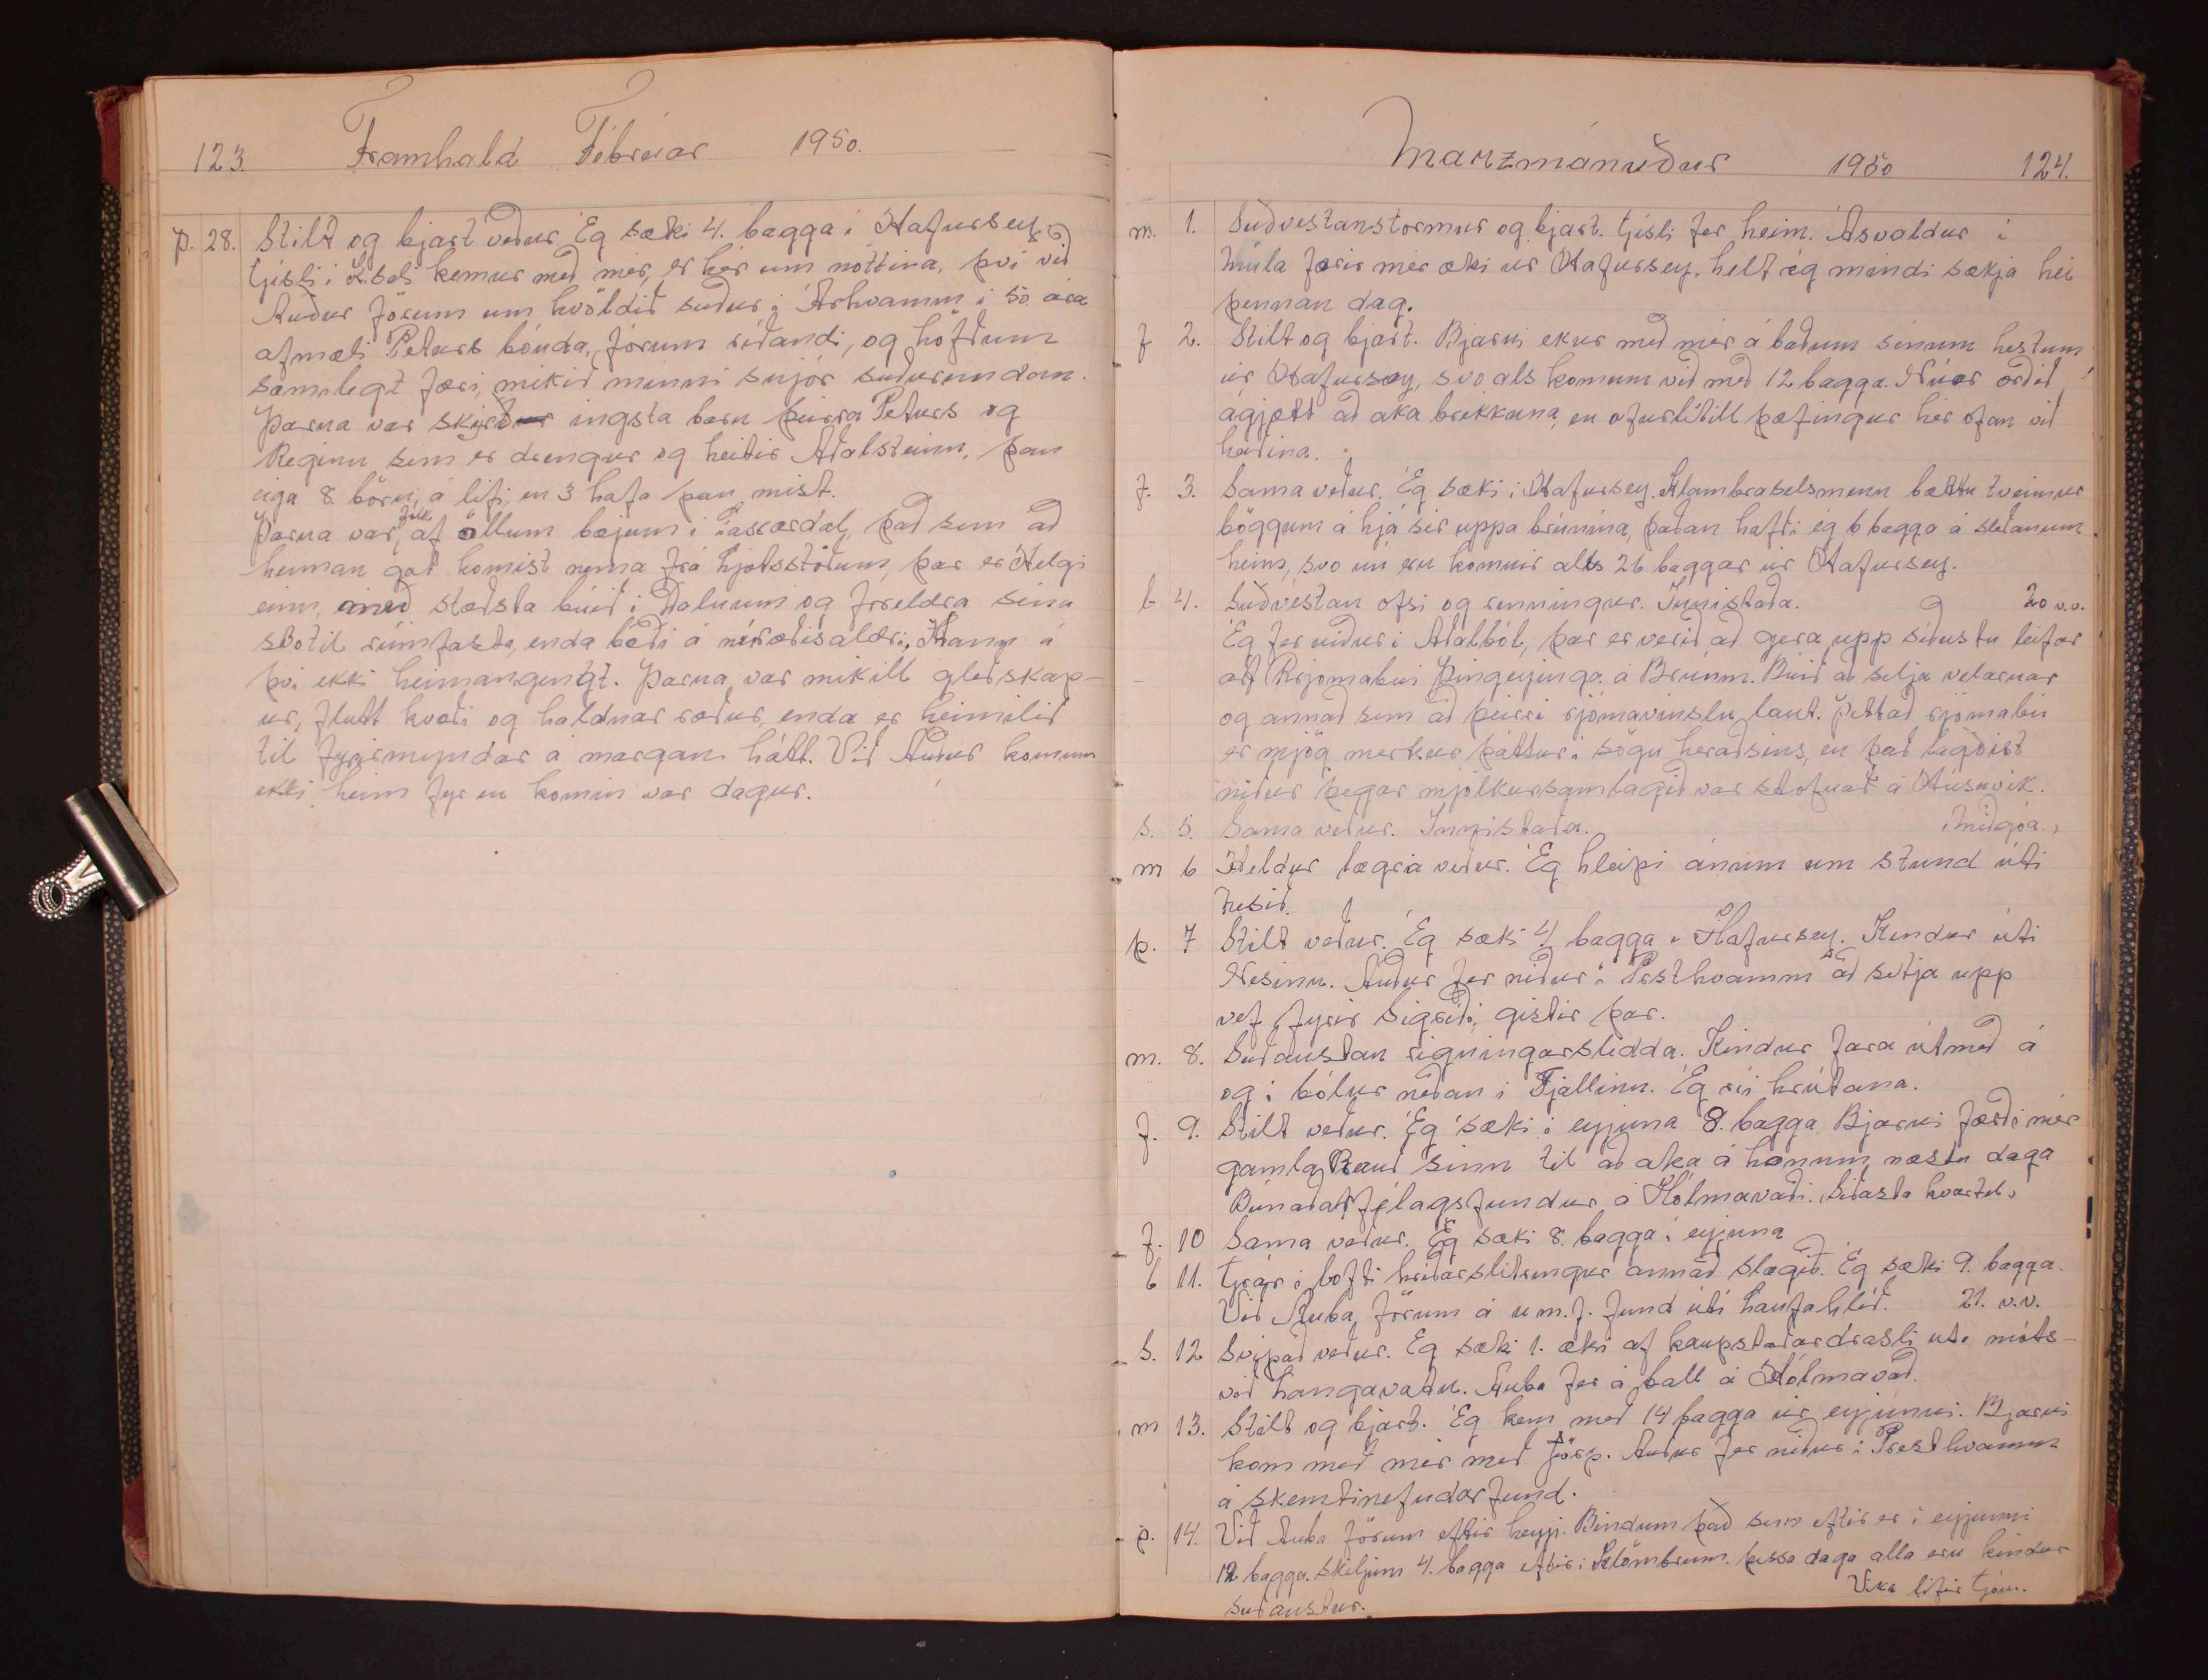 123. Framhald Febrúar 1950.
þ. 28. Stilt og bjart veður. Ég sæki 4. bagga í Hafursey.
Gísli í K.seli kemur með mér, er hér um nóttina, því við
Auður förum um kvöldið suður í Árhvamm í 50 ára
afmæli Péturs bónda, fórum ríðandi, og höfðum
sæmilegt færi, mikið minni snjór suðurundan.
Þarna var skírður ingsta barn þeirra Péturs og
Reginu sem er drengur og heitir Aðalsteinn, þau
eiga 8 börn, á lífi, en 3 hafa þau mist.
Þarna var fólk af öllum bæjum í Laxárdal, það sem að
heiman gat komist nema frá Ljótsstöðum, þar er Helgi
einn, með stæðsta búið í dalnum og foreldra sína
svotil rúmfasta, enda bæði á níræðisaldri. Hann á
því ekki heimangengt. Þarna var mikill gleðskap-
ur, flutt kvæði og haldnar ræður, enda er heimilið
til fyrirmyndar á margan hátt. Við Auður komum
ekki heim fyr en komin var dagur.
Marzmánuður 1950 124.
m. 1. Suðvestanstormur og bjart. Gísli fer heim. Ásvaldur í
Múla færir mér æki úr Hafursey, helt ég mindi sækja hei
þennan dag.
f 2. Stilt og bjart. Bjarni ekur með mér á báðum sínum hestum
úr Hafursey, svo als komum við með 12 bagga. Nú er orðið
ágjætt að aka brekkuna, en ofurlítill þæfingur hér ofan við
heiðina.
f. 3. Sama veður. Ég sæki í Hafursey. Klambraselsmenn bættu tveimur
böggum á hjá sér uppá brúnina, þaðan hafði ég 6 bagga á sleðanum
heim, svo nú eru komnir alls 26 baggar úr Hafursey.
l 4. Suðvestan ofsi og renningur. Innistaða. 20 v.v.
Ég fer niður í Aðalból, þar er verið að gera upp síðustu leifar
af Rjómabúi Þingeyinga á Brúnm. Búið að selja vélarnar
og annað sem að þeirri rjómavinslu laut. Þettað rjómabú
er mjög merkur þáttur í sögu héraðsins, en það lagðist
niður þegar mjólkursamlagið var stofnað á Húsavík.
S. 5. Sama veður. Innistaða. (Miðgóa.)
m 6 Heldur lægra veður. Ég hleipi ánum um stund úti
Nesið.
þ. 7 Stilt veður. Ég sæki 4 bagga í Hafursey. Kindur úti
Nesinu. Auður fer niður í Presthvamm að setja upp
vef fyrir Sigríði, gistir þar.
m. 8. Suðaustan rigningarslidda. Kindur fara útmeð á
og í bólur neðan í Fjallinu. Ég rúi hrútana.
f. 9. Stilt veður. Ég sæki í eyjuna 8. bagga. Bjarni færði mér
gamla Rauð sinn til að aka á honum næstu daga
Búnaðarfélagsfundur á Hólmavaði. (Síðasta kvartel)
f. 10 Sama veður. Ég sæki 8. bagga í eyjuna
l 11. Grár í lofti hríðarslitringur annað slagið. Ég sæki 9. bagga.
Við Auba förum á u.m.f. fund útí Langahlíð. 21. v.v.
S. 12 Svipað veður. Ég sæki 1. æki af kaupstaðardrasli úte móts-
við Langavatn. Auba fer á ball á Hólmavað.
m 13. Stilt og bjart. Ég kem með 14 bagga úr eyjunni. Bjarni
kom með mér með Jörp. Auður fer niður í Presthvamm
á skemtinefndarfund.
þ. 14. Við Auba förum eftir heyji. Bindum það sem eftir er í eyjunni
12 bagga. Skiljum 4. bagga eftir í Klömbrum. þessa daga alla eru kindur
suðaustur. Vika lifir Góu.